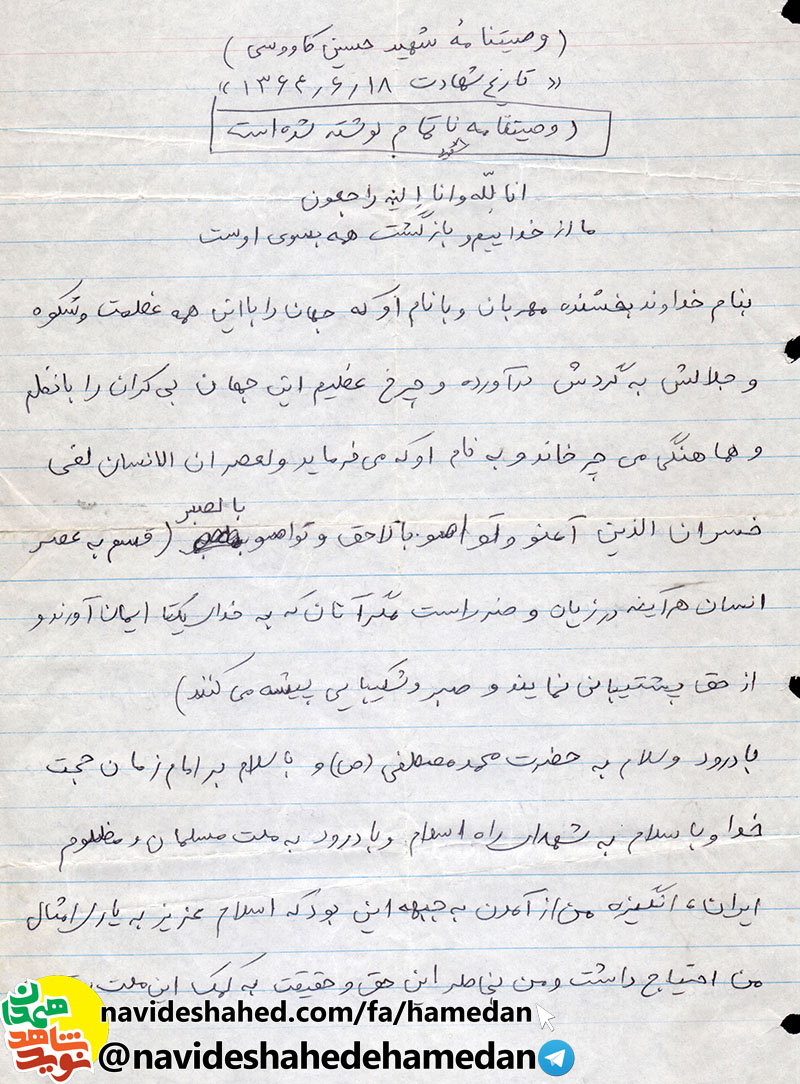 (وصیتنامه شهید حسین کاووسی)
«تاریخ شهادت ۱۳۶۴٫۶٫۱۸»
(وصیتنامه ناتمام نوشته شده است)
انا لله وانا الیه راجعون
ما از خداییم و بازگشت همه بسوی اوست
بنام خداوند بخشنده مهربان و با نام او که جهان را با این همه عظمت و شکوه
و جلالش به گردش درآورده و چرخ عظیم این جهان بی کران را با نظم
و هماهنگی می چرخاند و به نام او که می فرماید ولعصر ان الانسان لفی
خسران الذین آمنو و تواصو بالاحق و تواصو بالصبر (قسم به عصر
انسان هر آینه در زیان و ضرر است مگر آنان که به خدای یکتا ایمان آورند و
از حق پشتیبانی نمایند و صبر و شکیبایی پیشه می کنند)
با درود وسلام به حضرت محمد مصطفی (ص) و با سلام بر امام زمان حجت
خدا و با سلام به شهدای راه اسلام و با درود به ملت مسلمان و مظلوم
ایران، انگیزه من از آمدن به جبهه این بود که اسلام عزیز به یاری امثال
من احتیاج داشت و من بخاطر این حق و حقیقت به کمک این ملت
نوید شاهد همدان
navideshahed.com/fa/hamedan
@navideshahedehamedan